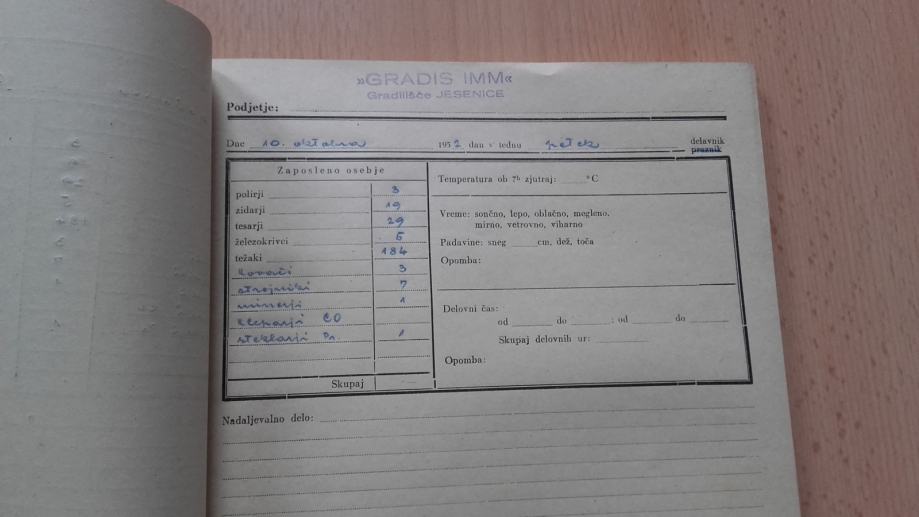 »GRADIS IMM«
Gradilišče JESENICE
Podjetje:
Dne 10. oktobra 1952 dan v tednu petek delavnik
praznik
Zaposleno osebje
polirji 3
zidarji 19
tesarji 29
železokrivci 5
težaki 184
kovači 3
strojniki 7
minerji 1
kleparji CO
steklarji Pr. 1
Skupaj
Temperatura ob 7ʰ zjutraj: °C
Vreme: sončno, lepo, oblačno, megleno,
mirno, vetrovno, viharno
Padavine: sneg cm, dež, toča
Opomba:
Delovni čas:
od do ; od do
Skupaj delovnih ur:
Opomba:
Nadaljevalno delo: